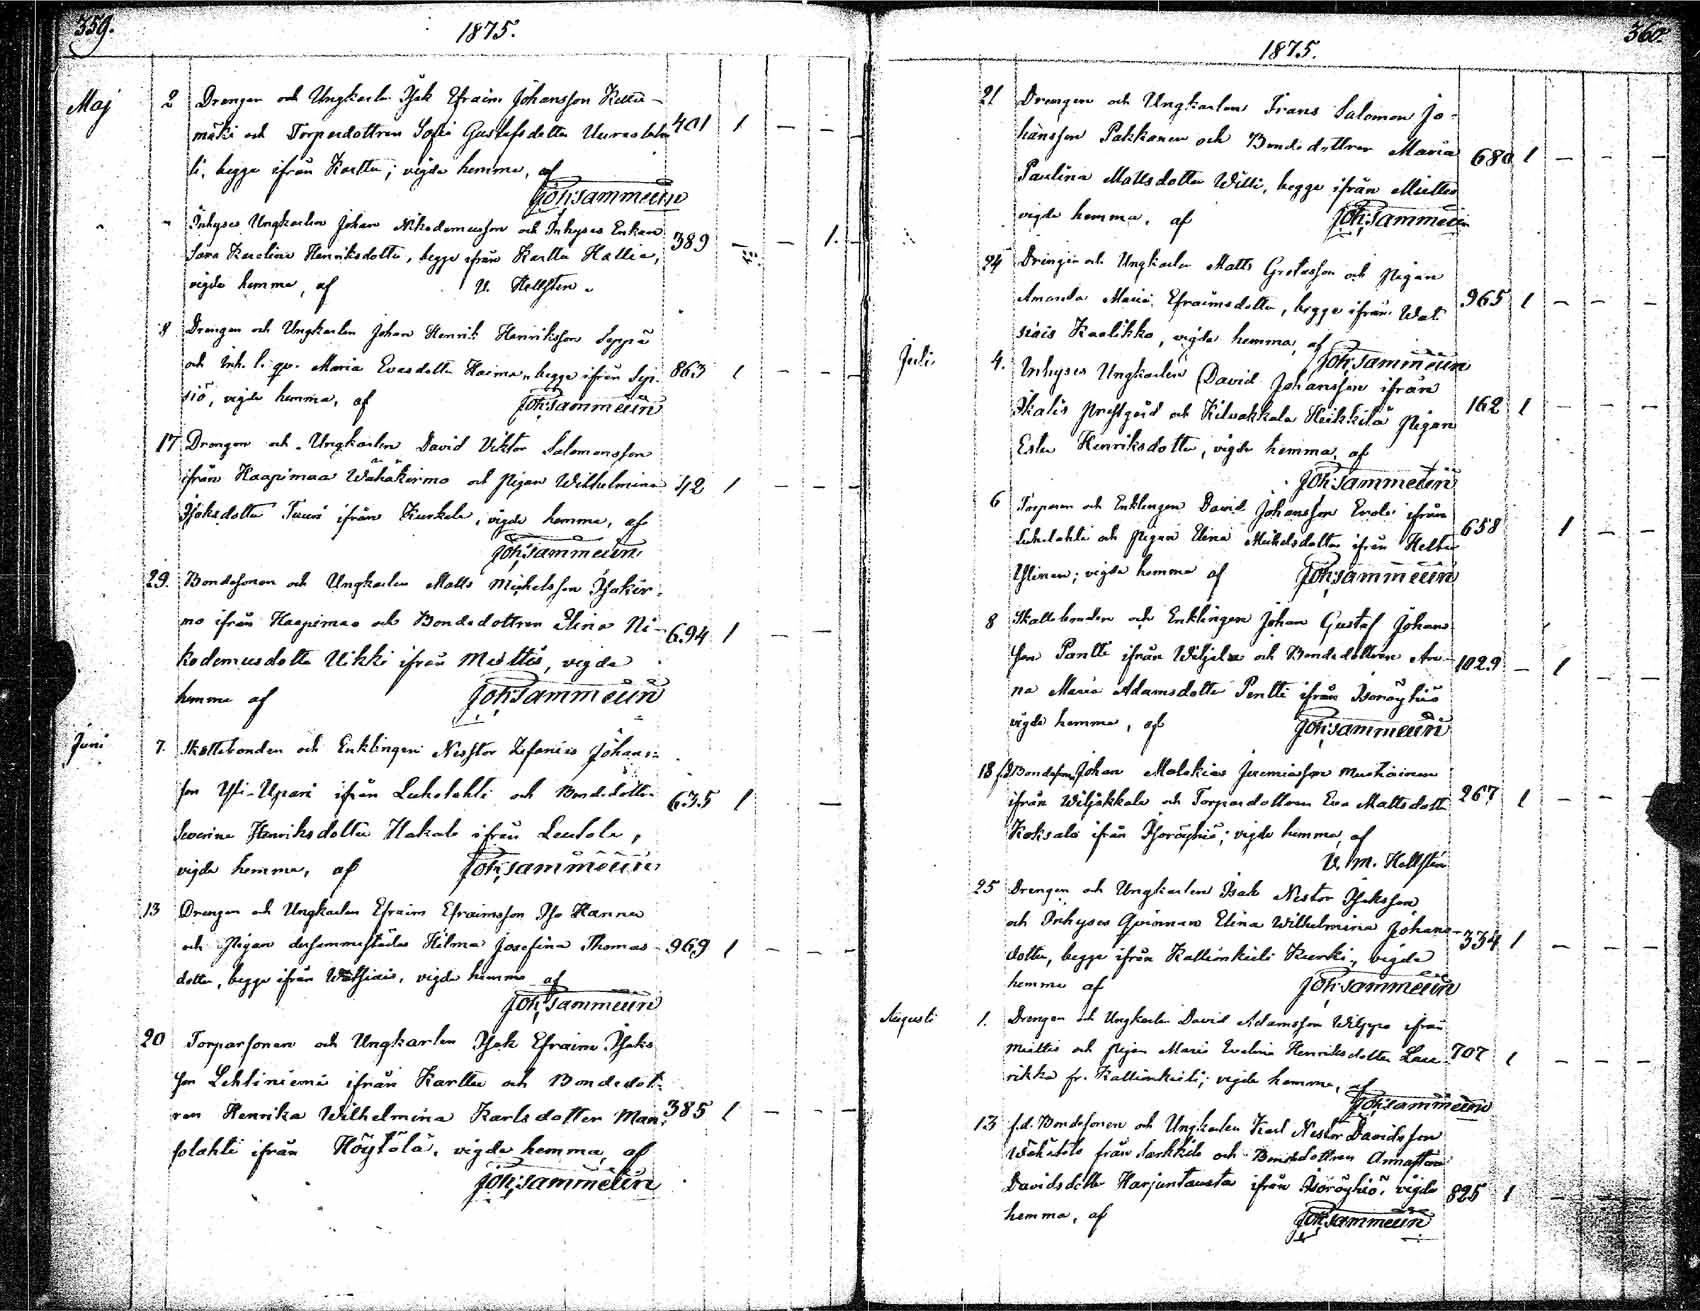 359.
1875.
Maj 2 Drengen och Ungkarlen Isak Efraim Johansson Kettu-
mäki och Torparedottren Sofia Gustafsdotter
begge ifrån Karttu; vigde hemma, af 401 1 — —
Joh: Sammelin
— Inhyses Ungkarlen Johan Nikodemusson och Inhyses Enkan
Sara Karolina Henriksdotter, begge ifrån Karttu Hallia, 389 — — 1.
vigde hemma, af V. Hellsten
8 Drengen och Ungkarlen Johan Henrik Henriksson Seppä
och Inh. l. qv. Maria Evasdotter Haima, begge ifrån Sip- 863 1 — —
siö, vigde hemma, af
Joh: Sammelin
17 Drengen och Ungkarlen David Viktor Salomonsson
ifrån Haapimaa Wähäkirmo och Pigan Wilhelmina 42 1 — —
Isaksdotter Tuuri ifrån Kurkela, vigde hemma, af
Joh: Sammelin
29. Bondesonen och Ungkarlen Matts Michelsson Isokir-
mo ifrån Haapimaa och Bondedottren Elina Ni- 694 1 — —
kodemusdotter Ukki ifrån Miettis, vigde
hemma af Joh: Sammelin
Juni 7. Skattebonden och Enklingen Nestor Zefanias Johans-
son Yli-Upari ifrån Luhalahti och Bondedotter 635 1 —
Severina Henriksdotter Hakala ifrån Leutola,
vigde hemma, af Joh: Sammelin
13 Drengen och Ungkarlen Efraim Efraimsson Iso Hanna
och Pigan dersammastädes Hilma Josefina Thomas- 969 1 — —
dotter, begge ifrån Watsiais, vigde hemma af
Joh: Sammelin
20 Torparsonen och Ungkarlen Isak Efraim Isaks-
son Lehtiniemi ifrån Karttu och Bondedot-
ren Henrika Wilhelmina Karlsdotter Man- 385 1 — —
solahti ifrån Höytölä, vigde hemma, af
Joh: Sammelin
360.
1875.
21 Drengen och Ungkarlen Frans Salomon Jo-
hansson Pakkanen och Bondedottren Maria 680 1 — —
Paulina Mattsdotter Witti, begge ifrån Miettis
vigde hemma, af Joh: Sammelin
24 Drengen och Ungkarlen Matts Gretasson och Pigan
Amanda Maria Efraimsdotter, begge ifrån Wat- 965 1 — —
siais Kaalikko, vigde hemma, af
Joh: Sammelin
Juli 4. Inhyses Ungkarlen David Johansson ifrån
Ikalis prestgård och Kilvakkala Heikkilä Pigan 162 1 — —
Ester Henriksdotter, vigde hemma, af
Joh: Sammelin
6 Torparen och Enklingen David Johansson Evola ifrån
Luhalahti och Pigan Elina Mickelsdotter ifrån Heltti 658 1 — —
Ylinen; vigde hemma af Joh: Sammelin
8 Skattebonden och Enklingen Johan Gustaf Johans-
son Pantti ifrån Wiljakka och Bondedottren An- 1029 — 1 — —
na Maria Adamsdotter Pentti ifrån Isoröyhiö
vigde hemma, af Joh: Sammelin
18 f.d. Bondeson Johan Malakias Jeremiasson Mustainen
ifrån Wiljakkala och Torparedottren Eva Mattsdotter 267 1 — —
Koksala ifrån Isoröyhiö; vigde hemma, af
V. M. Hellsten
25 Drengen och Ungkarlen Isak Nestor Isaksson
och Inhyses Qvinnan Elina Wilhelmina Johans- 334 1 — —
dotter, begge ifrån Kallionkieli Kurki, vigde
hemma af Joh: Sammelin
Augusti 1. Drengen och Ungkarlen David Adamsson Wilppo ifrån
Miettis och Pigan Maria Evelina Henriksdotter Lau- 707 1 — —
rikka fr. Kallionkieli; vigde hemma, af
Joh: Sammelin
13 f.d. Bondesonen och Ungkarlen Karl Nestor Davidsson
Wähätalo från Sarkkila och Bondedottren Annastava
Davidsdotter Harjuntausta ifrån Isoröyhiö, vigde 825 1 — —
hemma, af Joh: Sammelin